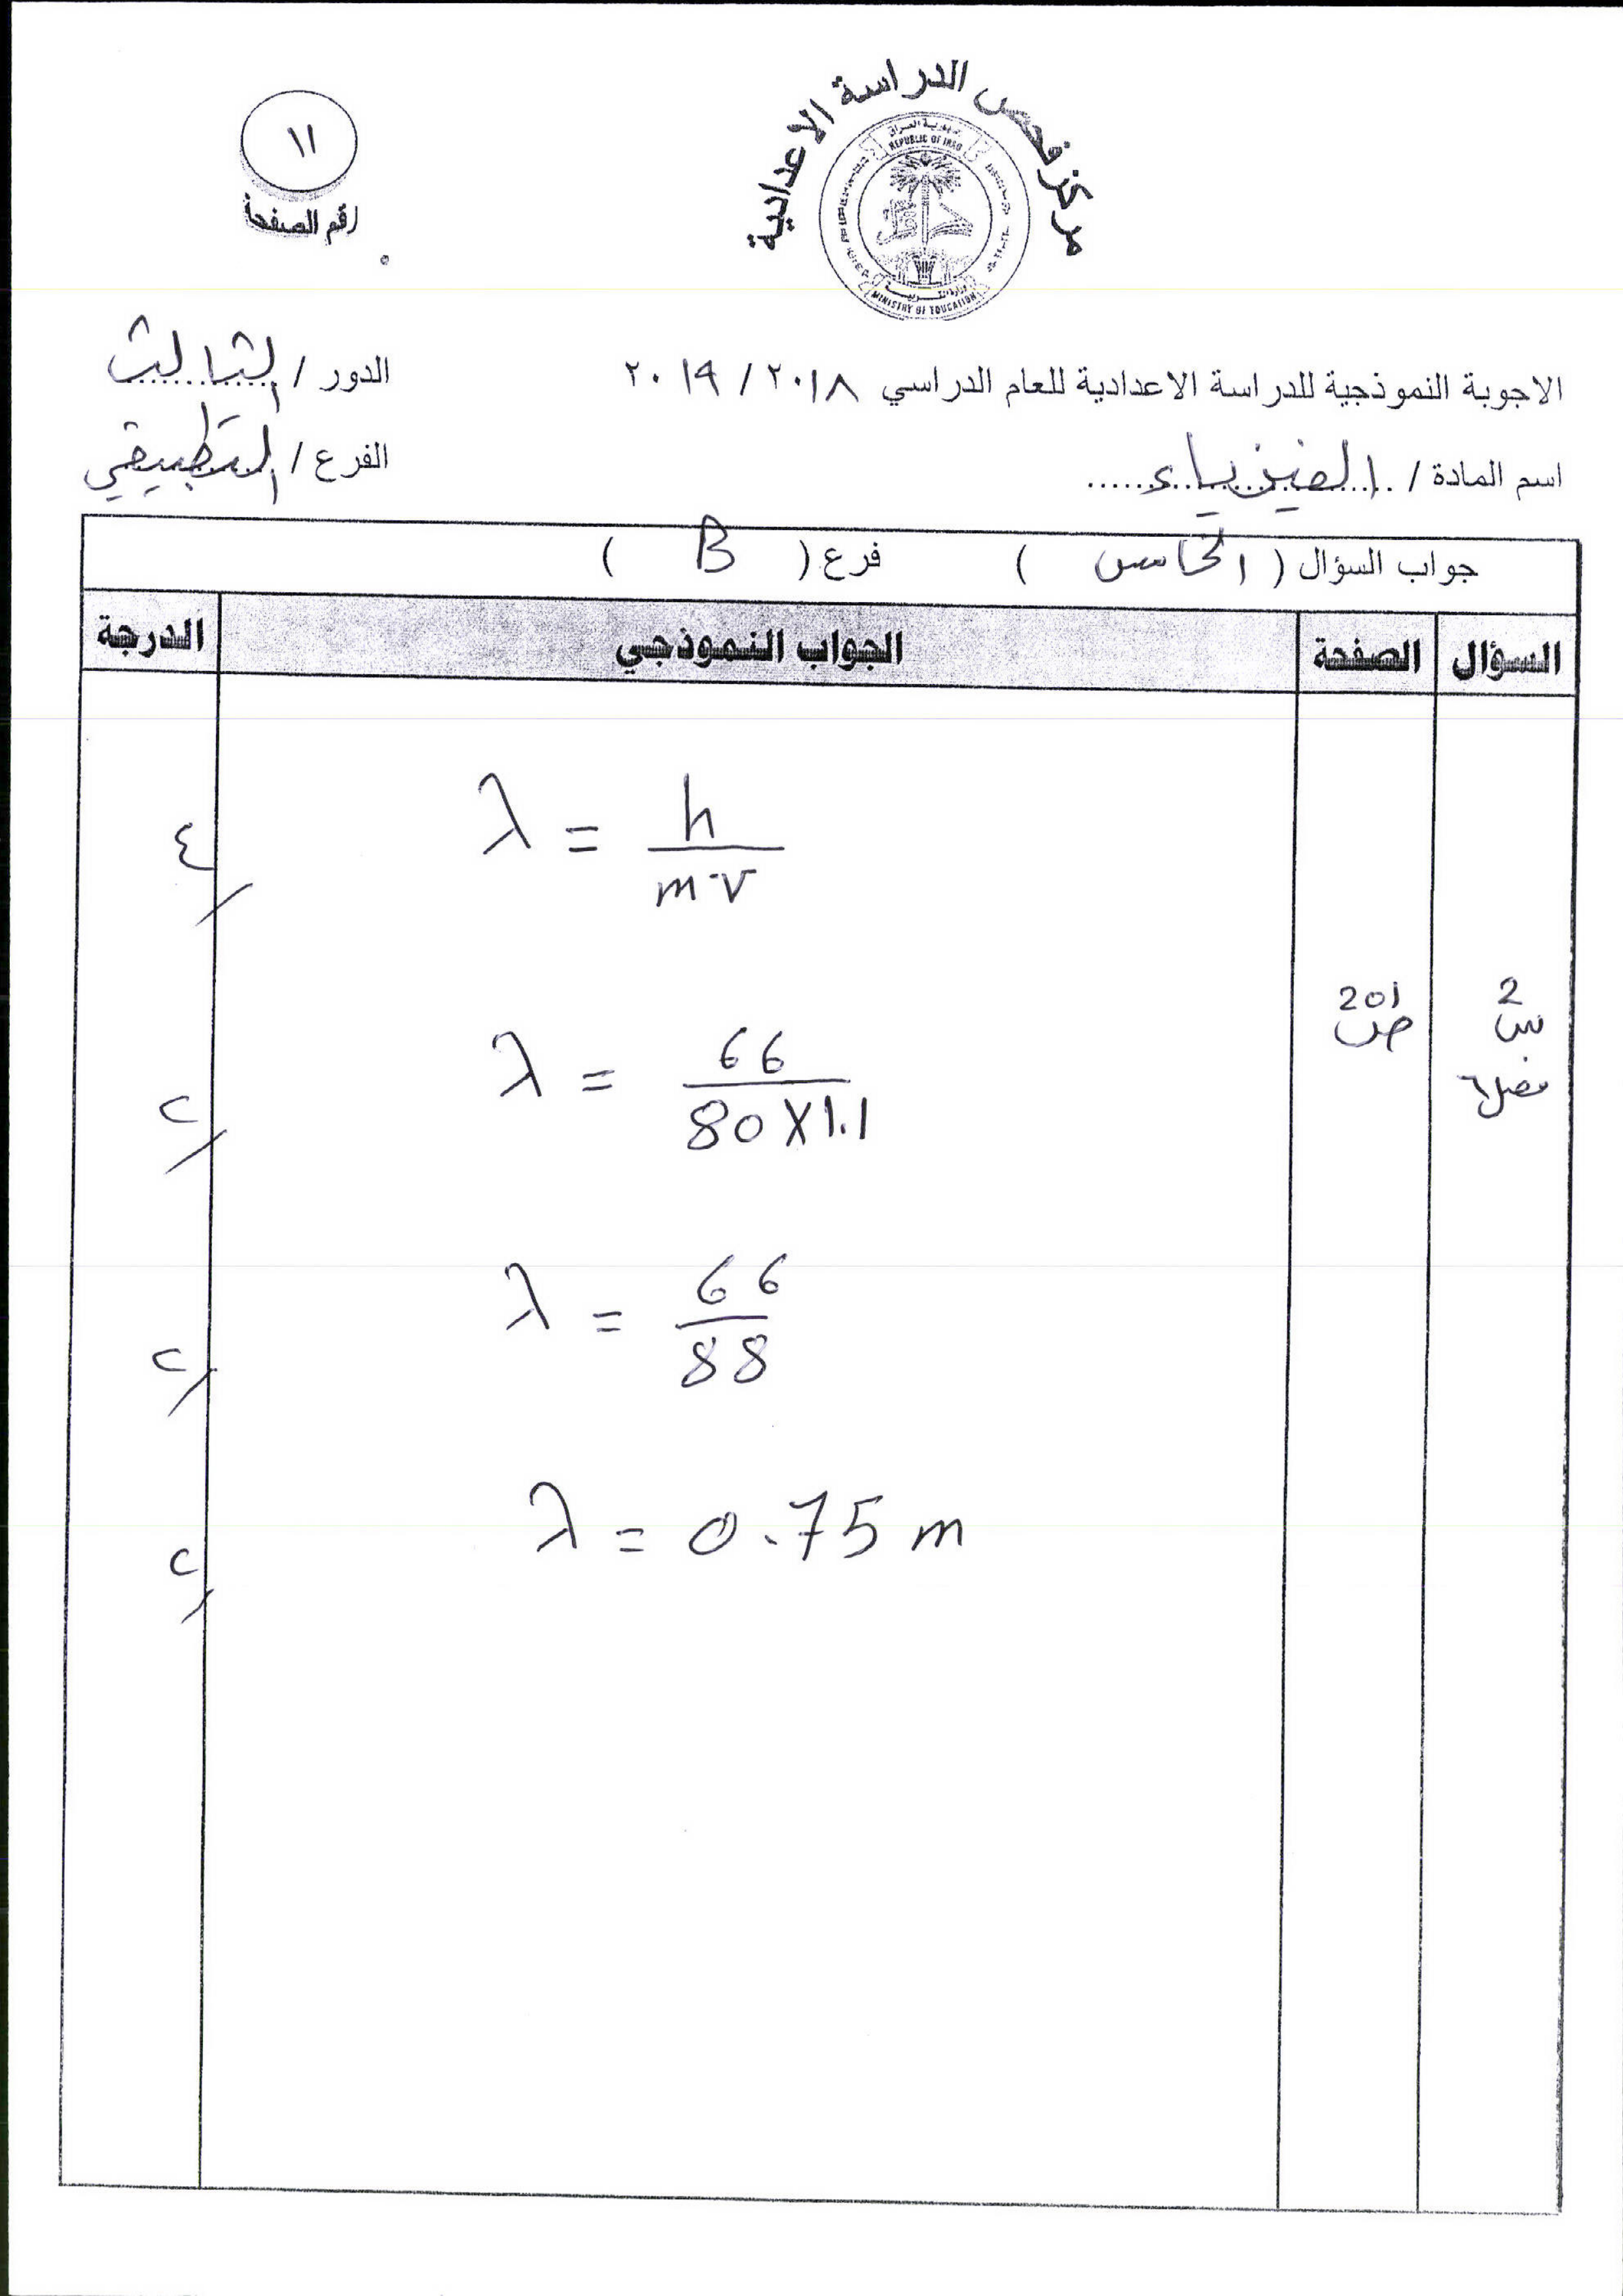 ١١
رقم الصفحة
مركز فحص الدراسة الاعدادية
جمهورية العراق
REPUBLIC OF IRAQ
وزارة التربية
MINISTRY OF EDUCATION
الاجوبة النموذجية للدراسة الاعدادية للعام الدراسي ٢٠١٨ / ٢٠١٩
الدور / الثالث
اسم المادة / الفيزياء
الفرع / التطبيقي
جواب السؤال ( الخامس ) فرع ( B )
السؤال الصفحة الجواب النموذجي الدرجة
λ = h / mv
٤
س 2
فصل ٦
ص 201
λ = 66 / 80 X 1.1
٢
λ = 66 / 88
٢
λ = 0.75 m
٢